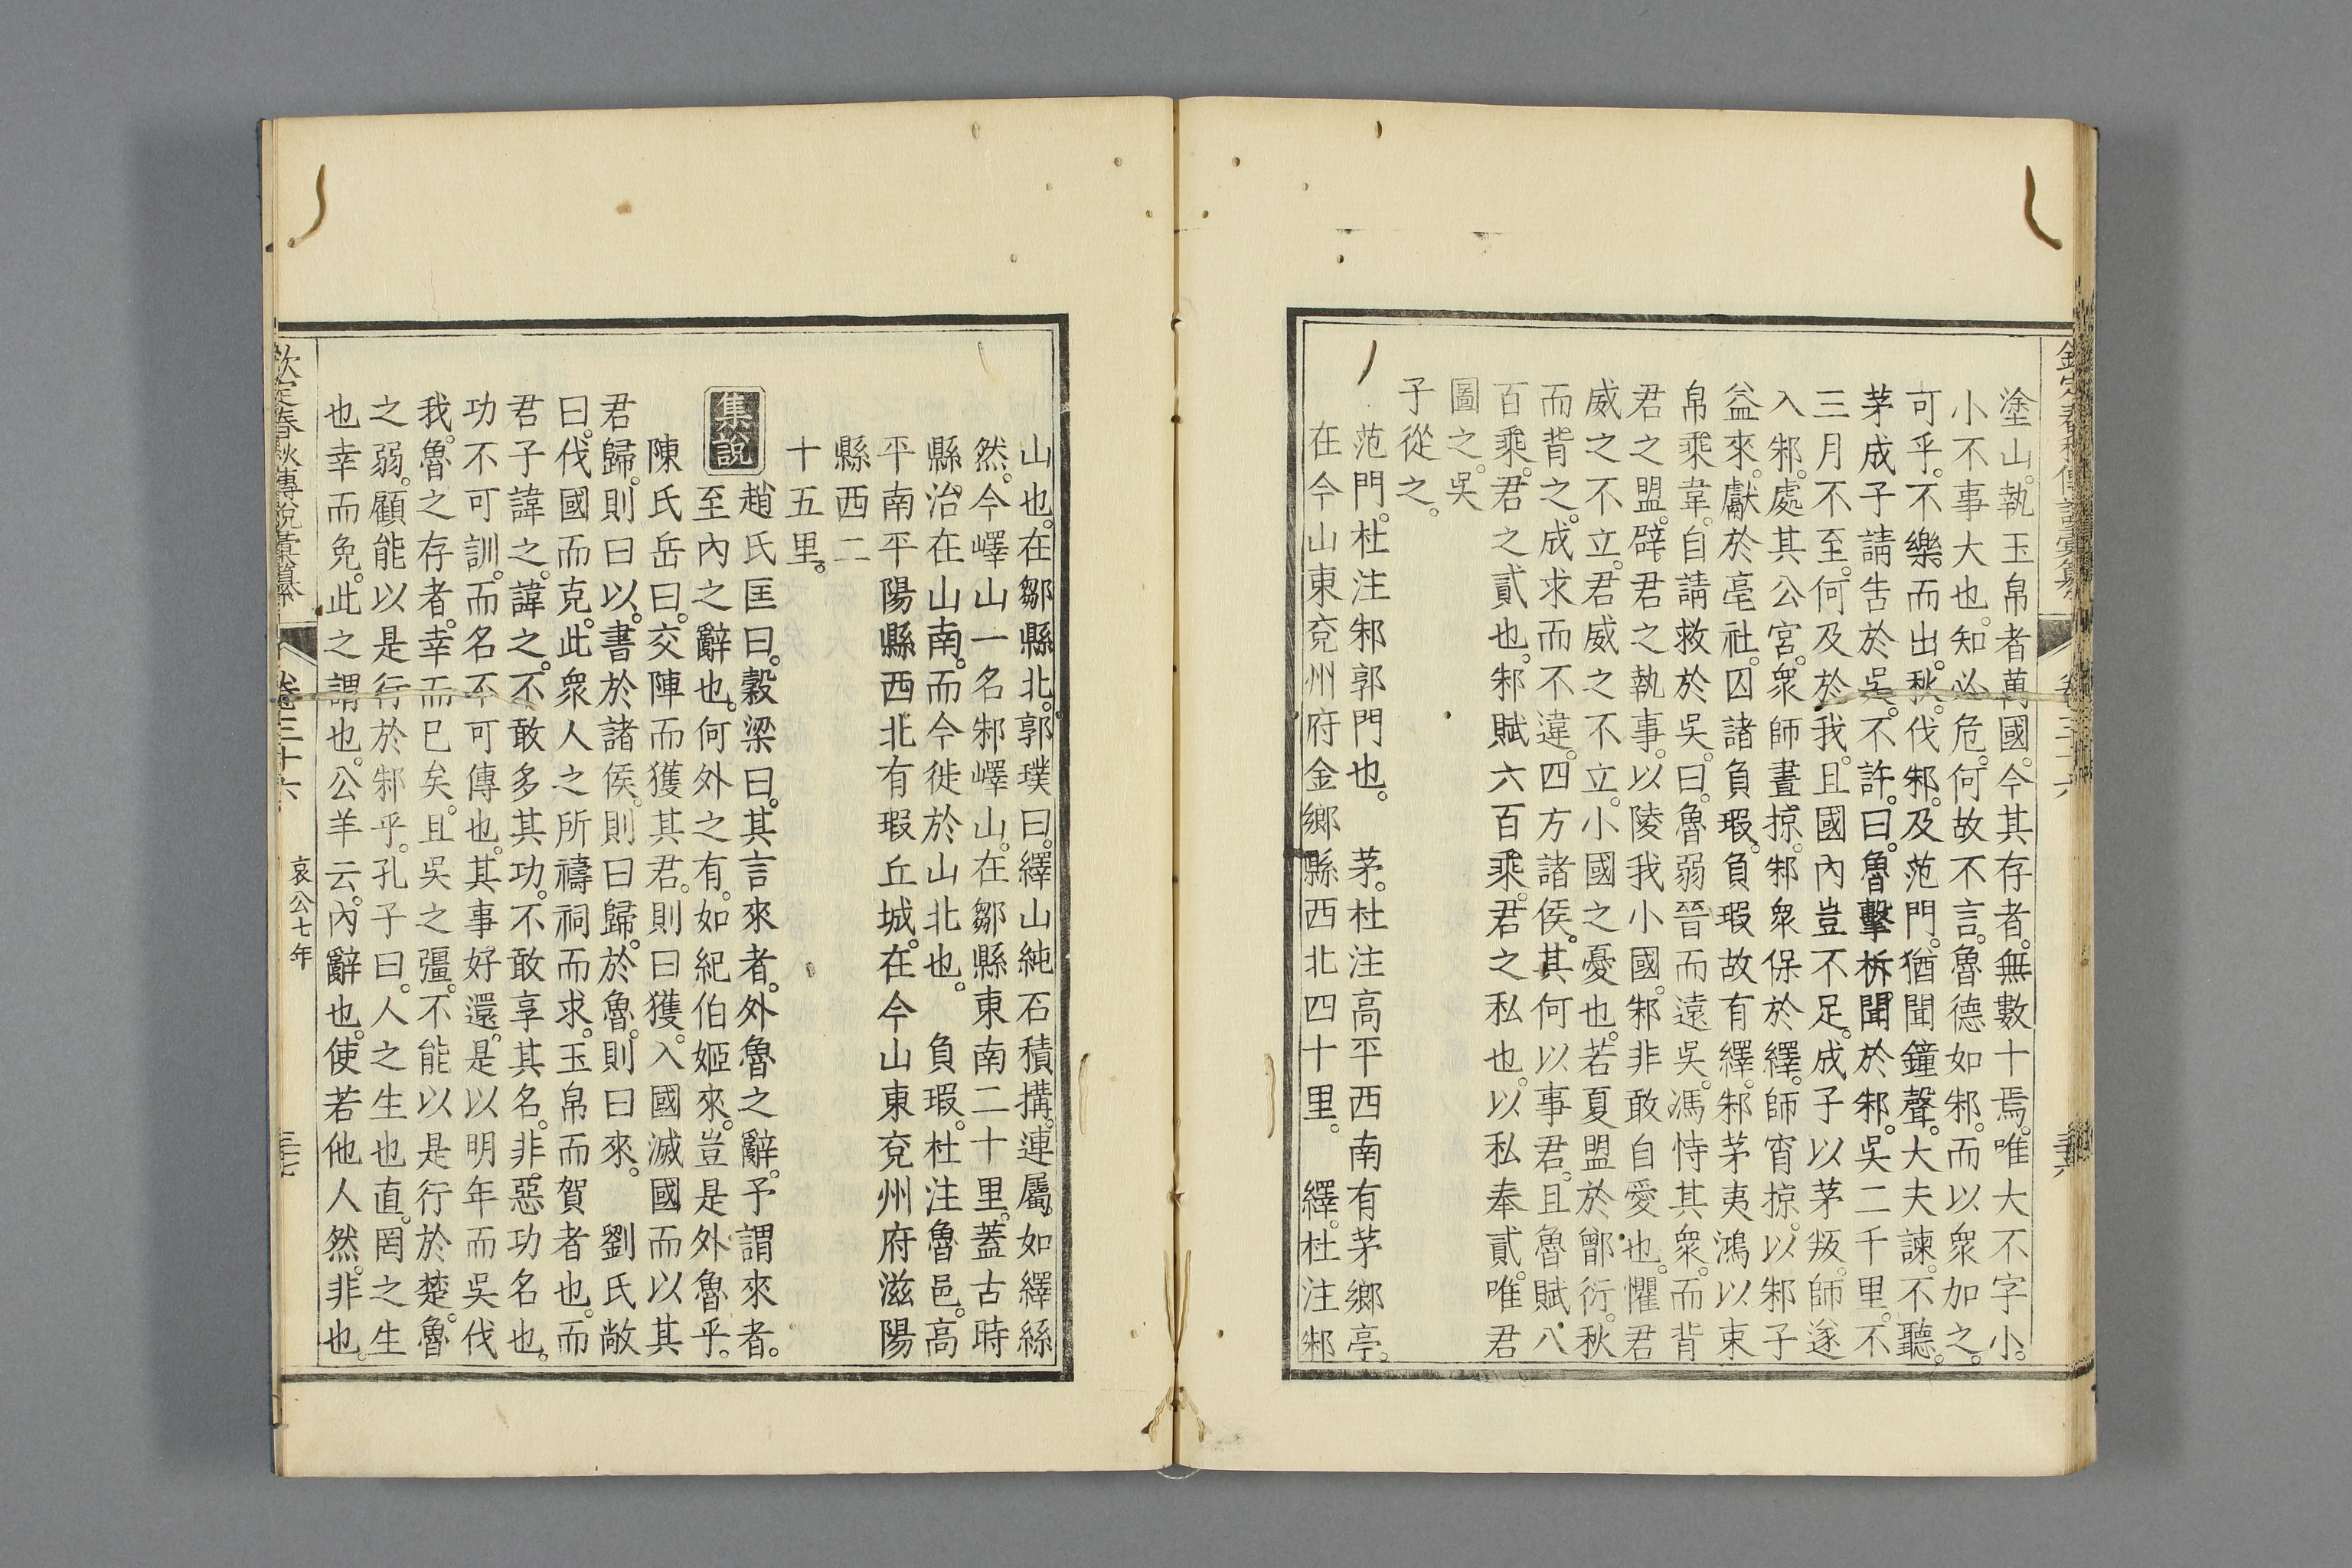 欽定春秋傳說彙纂 卷三十六 三六
塗山。執玉帛者萬國。今其存者。無數十焉。唯大不字小。
小不事大也。知必危。何故不言。魯德如邾。而以衆加之。
可乎。不樂而出。秋。伐邾。及范門。猶聞鐘聲。大夫諫。不聽。
茅成子請吿於吳。不許。曰。魯擊柝聞於邾。吳二千里。不
三月不至。何及於我。且國內豈不足。成子以茅叛。師遂
入邾。處其公宮。衆師晝掠。邾衆保於繹。師宵掠。以邾子
益來。獻於亳社。囚諸負瑕。負瑕故有繹。邾茅夷鴻以束
帛乘韋。自請救於吳。曰。魯弱晉而遠吳。馮恃其衆。而背
君之盟。辟君之執事。以陵我小國。邾非敢自愛也。懼君
威之不立。君威之不立。小國之憂也。若夏盟於鄫衍。秋
而背之。成求而不違。四方諸侯。其何以事君。且魯賦八
百乘。君之貳也。邾賦六百乘。君之私也。以私奉貳。唯君
圖之。吳
子從之。
范門。杜注邾郭門也。 茅。杜注高平西南有茅鄉亭。
在今山東兗州府金鄉縣西北四十里。 繹。杜注邾
山也。在鄒縣北。郭璞曰。繹山純石積搆。連屬。如繹絲
然。今嶧山一名邾嶧山。在鄒縣東南二十里。蓋古時
縣。治在山南。而今徙於山北也。 負瑕。杜注魯邑。高
平南平陽縣西北有瑕丘城。在今山東兗州府滋陽
縣西二
十五里。
集說 趙氏匡曰。穀梁曰。其言來者。外魯之辭。予謂來者。
至內之辭也。何外之有。如紀伯姬來。豈是外魯乎。
陳氏岳曰。交陣而獲其君。則曰獲。入國滅國而以其
君歸。則曰以。書於諸侯。則曰歸。於魯。則曰來。 劉氏敞
曰。伐國而克。此衆人之所禱祠而求。玉帛而賀者也。而
君子諱之。諱之。不敢多其功。不敢享其名。非惡功名也。
功不可訓。而名不可傳也。其事好還。是以明年而吳伐
我。魯之存者。幸而巳矣。且吳之彊。不能以是行於楚。魯
之弱。顧能以是行於邾乎。孔子曰。人之生也直。罔之生
也幸而免。此之謂也。公羊云。內辭也。使若他人然。非也。
欽定春秋傳說彙纂 卷三十六 哀公七年 三七